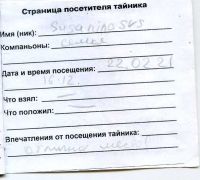 Страница посетителя тайника
Имя (ник): Susaninasks
Компаньоны: семья
Дата и время посещения: 22.02.21
16.12
Что взял:
Что положил:
Впечатления от посещения тайника:
отлично